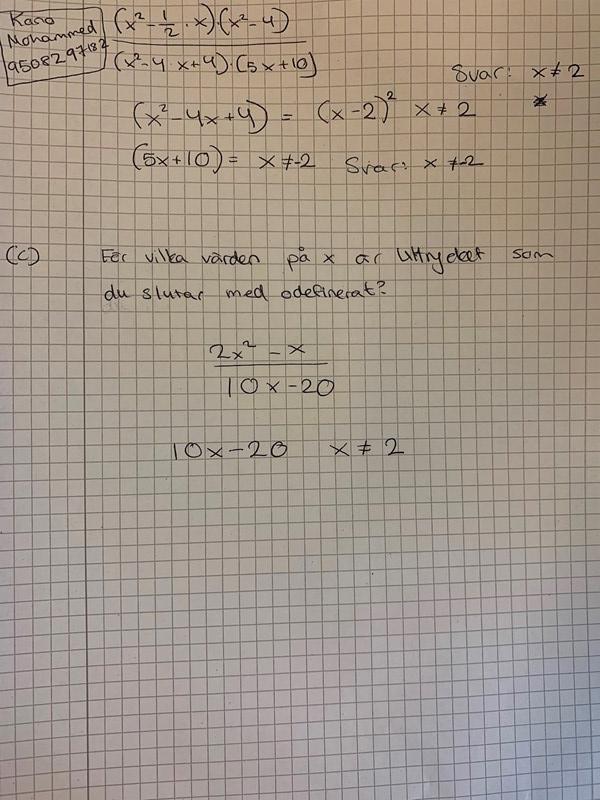 Kano
Mohammed
9508297182
(x² - 1/2 · x) · (x² - 4)
(x² - 4 · x + 4) · (5x + 10)
Svar: x ≠ 2
(x² - 4x + 4) = (x - 2)² x ≠ 2
(5x + 10) = x ≠ -2 Svar: x ≠ -2
(c) För vilka värden på x är uttrycket som
du slutar med odefinerat?
2x² - x
10x - 20
10x - 20 x ≠ 2